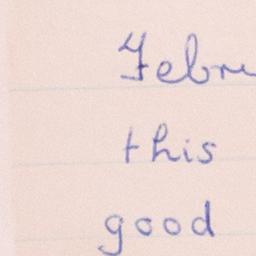 Febru
this
good